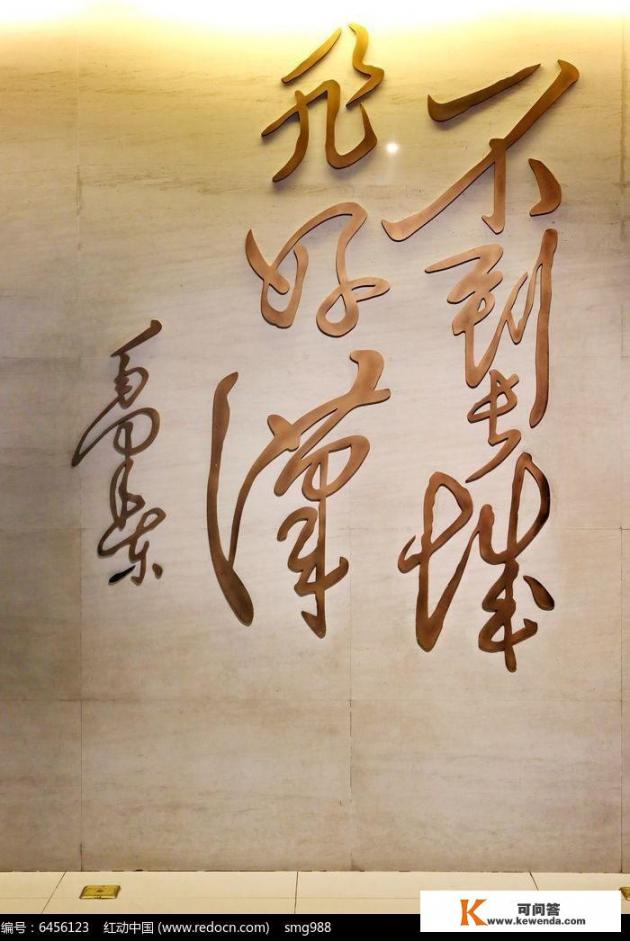 不到长城
非好汉
毛泽东
编号：6456123 红动中国 (www.redocn.com) smg988
K 可问答
www.kewenda.com